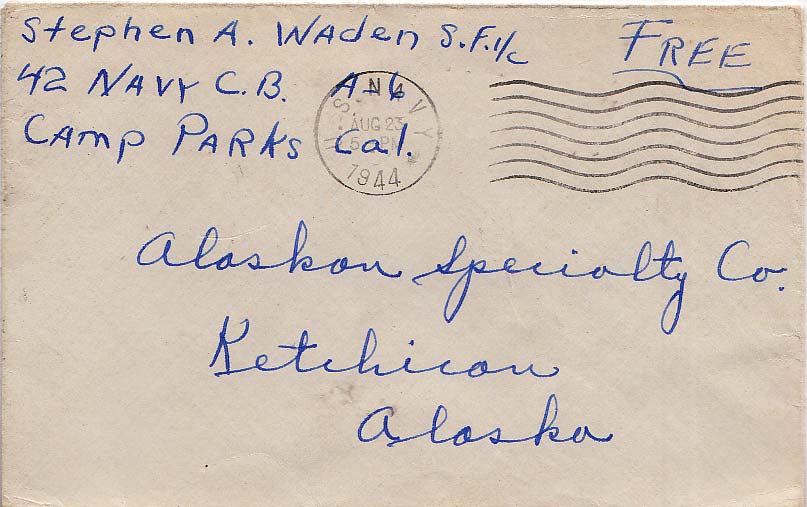 Stephen A. Waden S.F.1/c
FREE
42 NAVY C.B. A-6
CAMP PARKS Cal.
U.S. NAVY
AUG 23
5 PM
1944
Alaskan Specialty Co.
Ketchican
Alaska